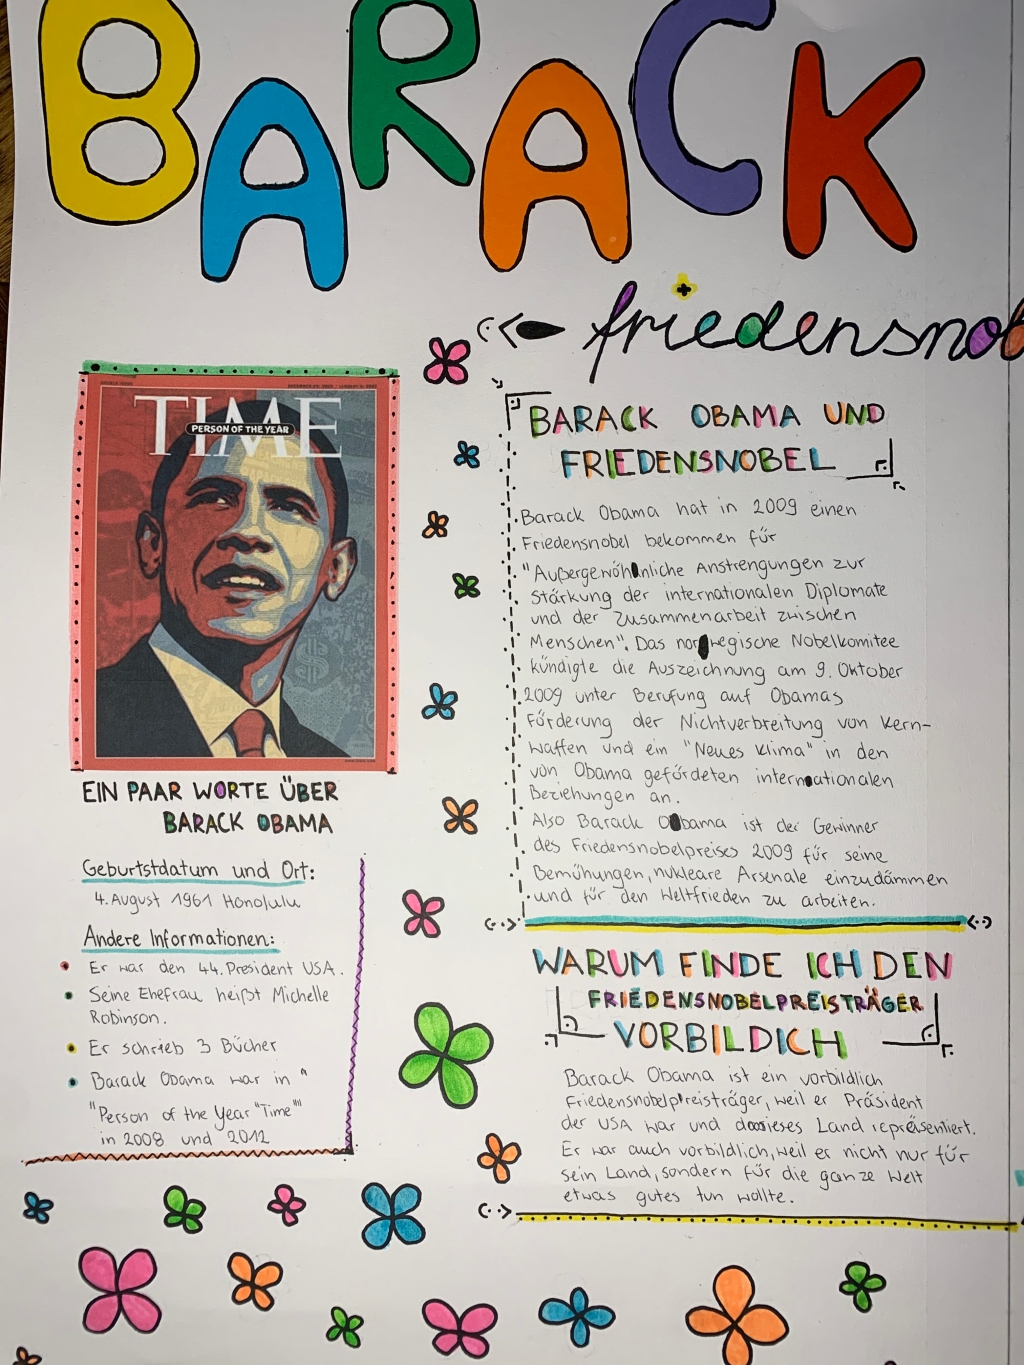 BARACK
friedensnob
TIME
PERSON OF THE YEAR
EIN PAAR WORTE ÜBER
BARACK OBAMA
Geburtstdatum und Ort:
4. August 1961 Honolulu
Andere Informationen:
Er war den 44. President USA.
Seine Ehefrau heißt Michelle
Robinson.
Er schrieb 3 Bücher
Barack Obama war in "
"Person of the Year "Time""
in 2008 und 2012
BARACK OBAMA UND
FRIEDENSNOBEL
Barack Obama hat in 2009 einen
Friedensnobel bekommen für
"Außergewöhnliche Anstrengungen zur
Stärkung der internationalen Diplomate
und der Zusammenarbeit zwischen
Menschen". Das norwegische Nobelkomitee
kündigte die Auszeichnung am 9. Oktober
2009 unter Berufung auf Obamas
Förderung der Nichtverbreitung von Kern-
waffen und ein "Neues Klima" in den
von Obama gefördeten internationalen
Beziehungen an.
Also Barack Obama ist der Gewinner
des Friedensnobelpreises 2009 für seine
Bemühungen, nukleare Arsenale einzudämmen
und für den Weltfrieden zu arbeiten.
WARUM FINDE ICH DEN
FRIEDENSNOBELPREISTRÄGER
VORBILDICH
Barack Obama ist ein vorbildlich
Friedensnobelpreisträger, weil er Präsident
der USA war und dieses Land repräsentiert.
Er war auch vorbildlich, weil er nicht nur für
sein Land, sondern für die ganze Welt
etwas gutes tun wollte.